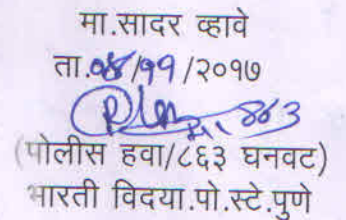 मा.सादर व्हावे
ता.०४/११/२०१७
८६३
(पोलीस हवा/८६३ घनवट)
भारती विदया.पो.स्टे.पुणे